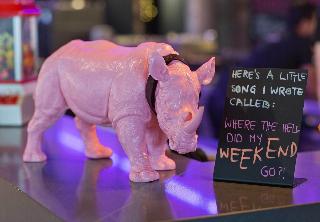 HERE'S A LITTLE
SONG I WROTE
CALLED:
WHERE THE HELL
DID MY
WEEKEND
GO?!